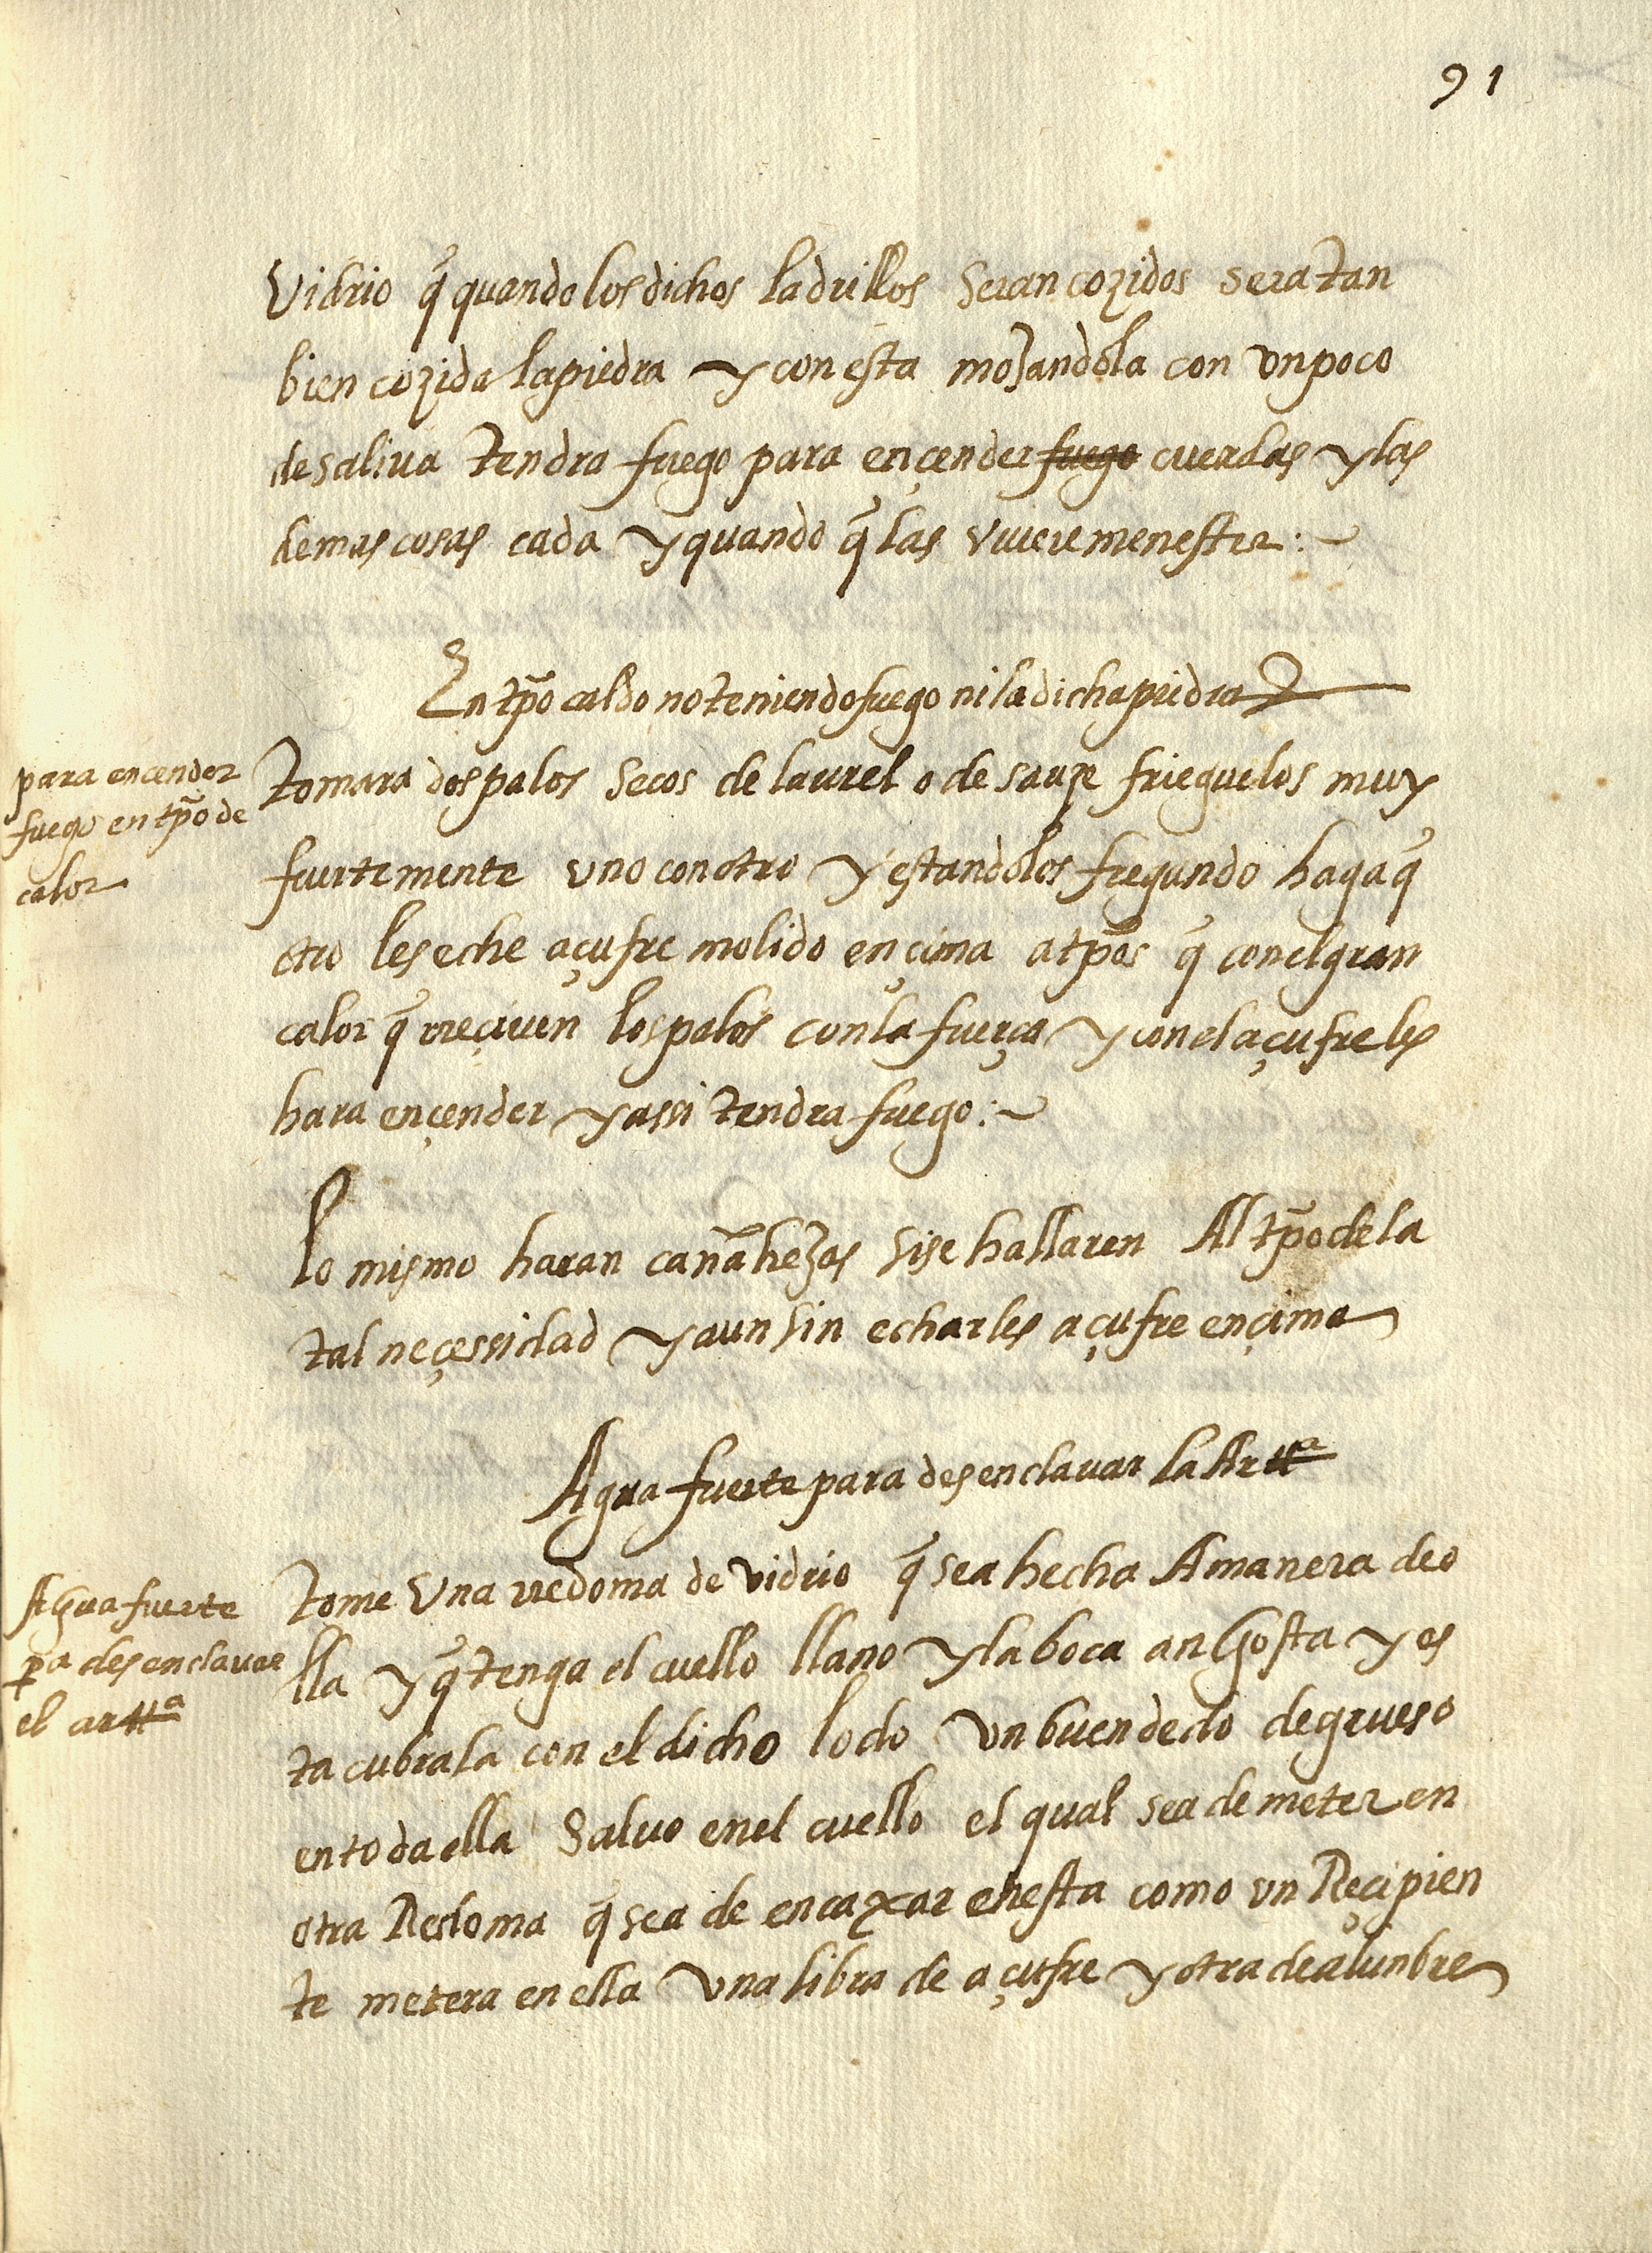 91
Vidrio q̃ quando los dichos ladrillos seran cozidos sera tan
bien cozida la piedra y con esta mojandola con vn poco
de saliua tendra fuego para ençender fuego cuerdas y las
demas cosas cada y quando q̃ las vuiere menester:~
En tp̃o caldo no teniendo fuego ni la dicha piedra
para encender
fuego en tp̃o de
calor
tomara dos palos secos de laurel o de sauze frieguelos muy
fuertemente vno con otro y estandolos fregando haga q̃
otro les eche açufre molido ençima a tp̃os q̃ con el gran
calor q̃ rreçiuen los palos con la fuerça y con el açufre les
hara ençender y assi tendra fuego:~
Lo mismo haran cañahejas si se hallaren Al tp̃o de la
tal neçessidad y aun sin echarles açufre ençima
Agua fuerte para desenclauar la Artta
AGua fuerte
pa desenclauar
el artta
tome Vna rredoma de vidrio q̃ sea hecha A manera de o
lla y q̃ tenga el cuello llano y la boca anGosta y es
ta cubrala con el dicho lodo vn buen dedo de grueso
en toda ella saluo en el cuello el qual sea de meter en
otra Redoma q̃ sea de encaxar en esta como vn Reçipien
te metera en ella vna libra de açufre y otra de alunbre